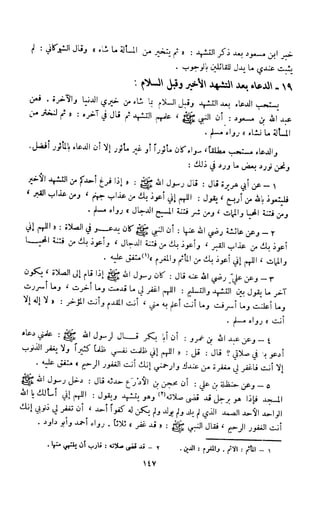 خبر ابن مسعود بعد ذكر التشهد : « ثم يتخير من المسألة ما شاء » وقال الشوكاني : لم
يثبت عندي ما يدل للقائلين بالوجوب .
١٩ - الدعاء بعد التشهد الأخير وقبل السلام :
يستحب الدعاء بعد التشهد وقبل السلام بما شاء من خيري الدنيا والآخرة . فعن
عبد الله بن مسعود : أن النبي ﷺ ، علمهم التشهد ثم قال في آخره : « ثم لتختر من
المسألة ما تشاء » رواه مسلم .
والدعاء مستحب مطلقاً ، سواء كان مأثوراً أو غير مأثور إلا أن الدعاء بالمأثور أفضل .
ونحن نورد بعض ما ورد في ذلك :
١ - عن أبي هريرة قال : قال رسول الله ﷺ : « إذا فرغ أحدكم من التشهد الأخير
فليتعوذ بالله من أربع ، يقول : اللهم إني أعوذ بك من عذاب جهنم ، ومن عذاب القبر ،
ومن فتنة المحيا والممات ، ومن شر فتنة المسيح الدجال » رواه مسلم .
٢ - وعن عائشة رضي الله عنها : أن النبي ﷺ كان يدعو في الصلاة : « اللهم إني
أعوذ بك من عذاب القبر ، وأعوذ بك من فتنة الدجال ، وأعوذ بك من فتنة المحيا
والممات ، اللهم إني أعوذ بك من المأثم والمغرم »(١) متفق عليه .
٣ - وعن علي رضي الله عنه قال : كان رسول الله ﷺ إذا قام إلى الصلاة ، يكون
آخر ما يقول بين التشهد والتسليم : اللهم اغفر لي ما قدمت وما أخرت ، وما أسررت
وما أعلنت وما أسرفت وما أنت أعلم به مني ، أنت المقدم وأنت المؤخر : « لا إله إلا
أنت » رواه مسلم .
٤ - وعن عبد الله بن عمرو : أن أبا بكر قال لرسول الله ﷺ : علمني دعاء
أدعو به في صلاتي ؟ قال : قل : « اللهم إني ظلمت نفسي ظلماً كثيراً ولا يغفر الذنوب
إلا أنت فاغفر لي مغفرة من عندك وارحمني إنك أنت الغفور الرحيم » متفق عليه .
٥ - وعن حنظلة بن علي : أن محجن بن الأدرع حدثه قال : دخل رسول الله ﷺ
المسجد فإذا هو برجل قد قضى صلاته(٢) وهو يتشهد ويقول : اللهم إني أسألك يا الله
الواحد الأحد الصمد الذي لم يلد ولم يولد ولم يكن له كفواً أحد ، أن تغفر لي ذنوبي إنك
أنت الغفور الرحيم ، فقال النبي ﷺ : « قد غفر » ثلاثاً . رواه أحمد وأبو داود .
١ - المأثم : الاثم . والمغرم : الدين . ٢ - قد قضى صلاته : قارب أن ينتهي منها .
١٤٧